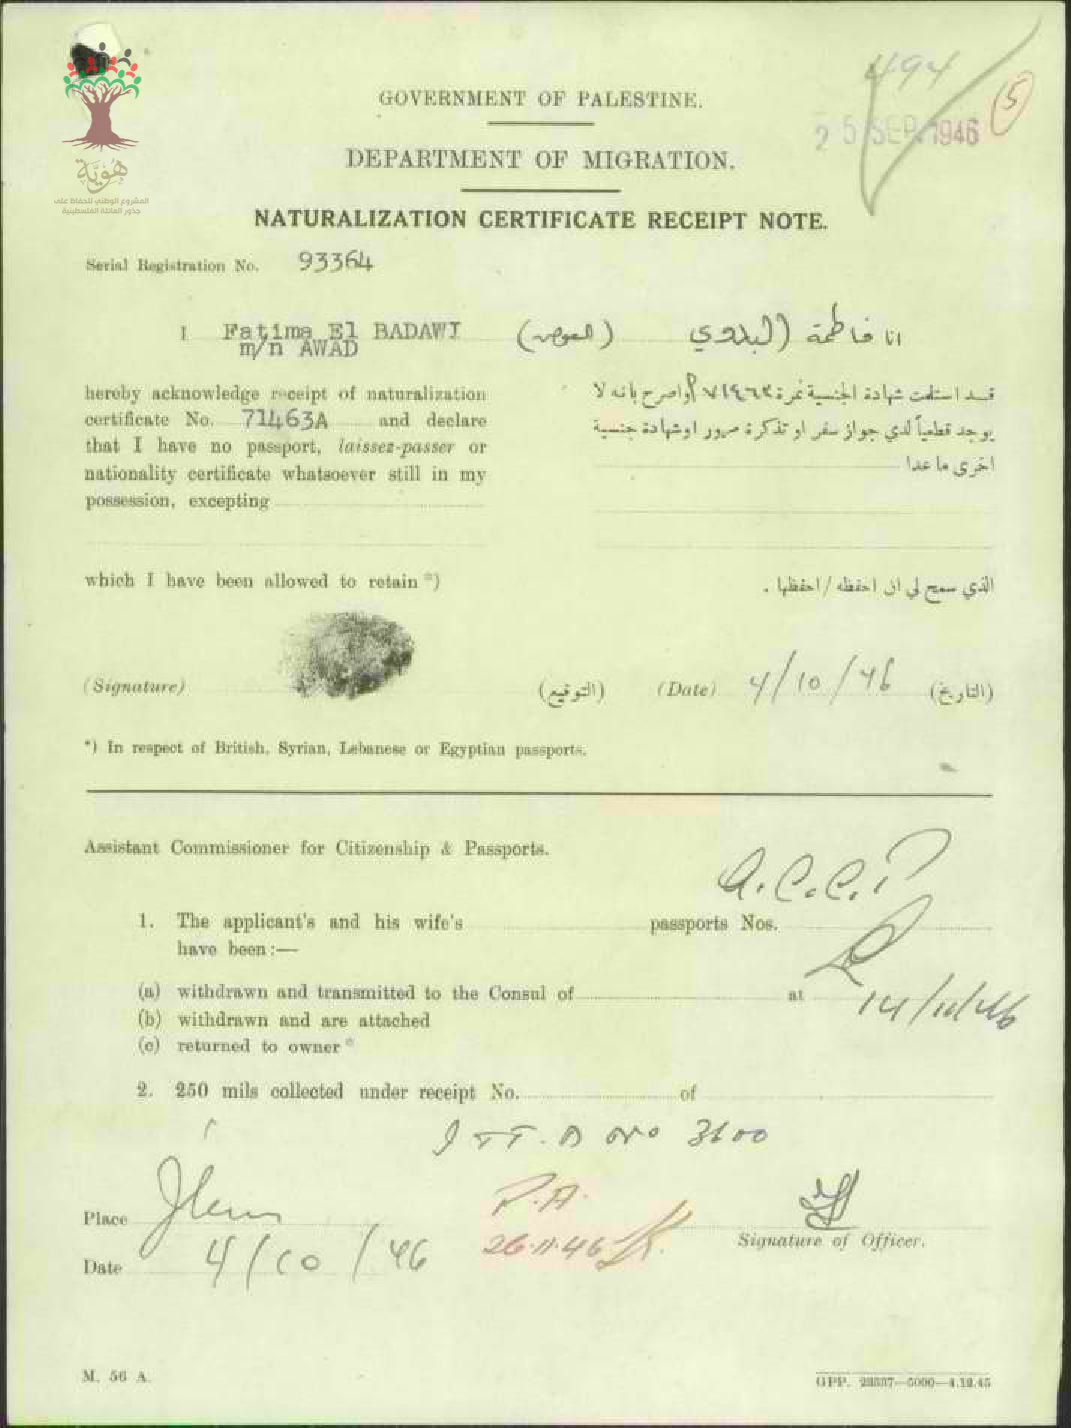 هويّة
المشروع الوطني للحفاظ على
جذور العائلة الفلسطينية
494
5
25 SEP 1946
GOVERNMENT OF PALESTINE.
DEPARTMENT OF MIGRATION.
NATURALIZATION CERTIFICATE RECEIPT NOTE.
Serial Registration No. 93364
I Fatima El BADAWI
m/n AWAD
hereby acknowledge receipt of naturalization
certificate No. 71463A and declare
that I have no passport, laissez-passer or
nationality certificate whatsoever still in my
possession, excepting
which I have been allowed to retain *)
انا فاطمة البدوي
قد استلمت شهادة الجنسية نمرة ٧١٤٦٣ واصرح بانه لا
يوجد قطعياً لدي جواز سفر او تذكرة مرور او شهادة جنسية
اخرى ما عدا
الذي سمح لي ان احفظه / احفظها .
(Signature) (التوقيع) (Date) 4/10/46 (التاريخ)
*) In respect of British, Syrian, Lebanese or Egyptian passports.
Assistant Commissioner for Citizenship & Passports.
a.c.c.P
1. The applicant's and his wife's passports Nos.
have been :—
(a) withdrawn and transmitted to the Consul of at
(b) withdrawn and are attached
(c) returned to owner *
14/10/46
2. 250 mils collected under receipt No. of
3600
P.A.
26.11.46
Place
Signature of Officer.
Date 4/10/46
M. 56 A.
GPP. 23337—5000—4.12.45